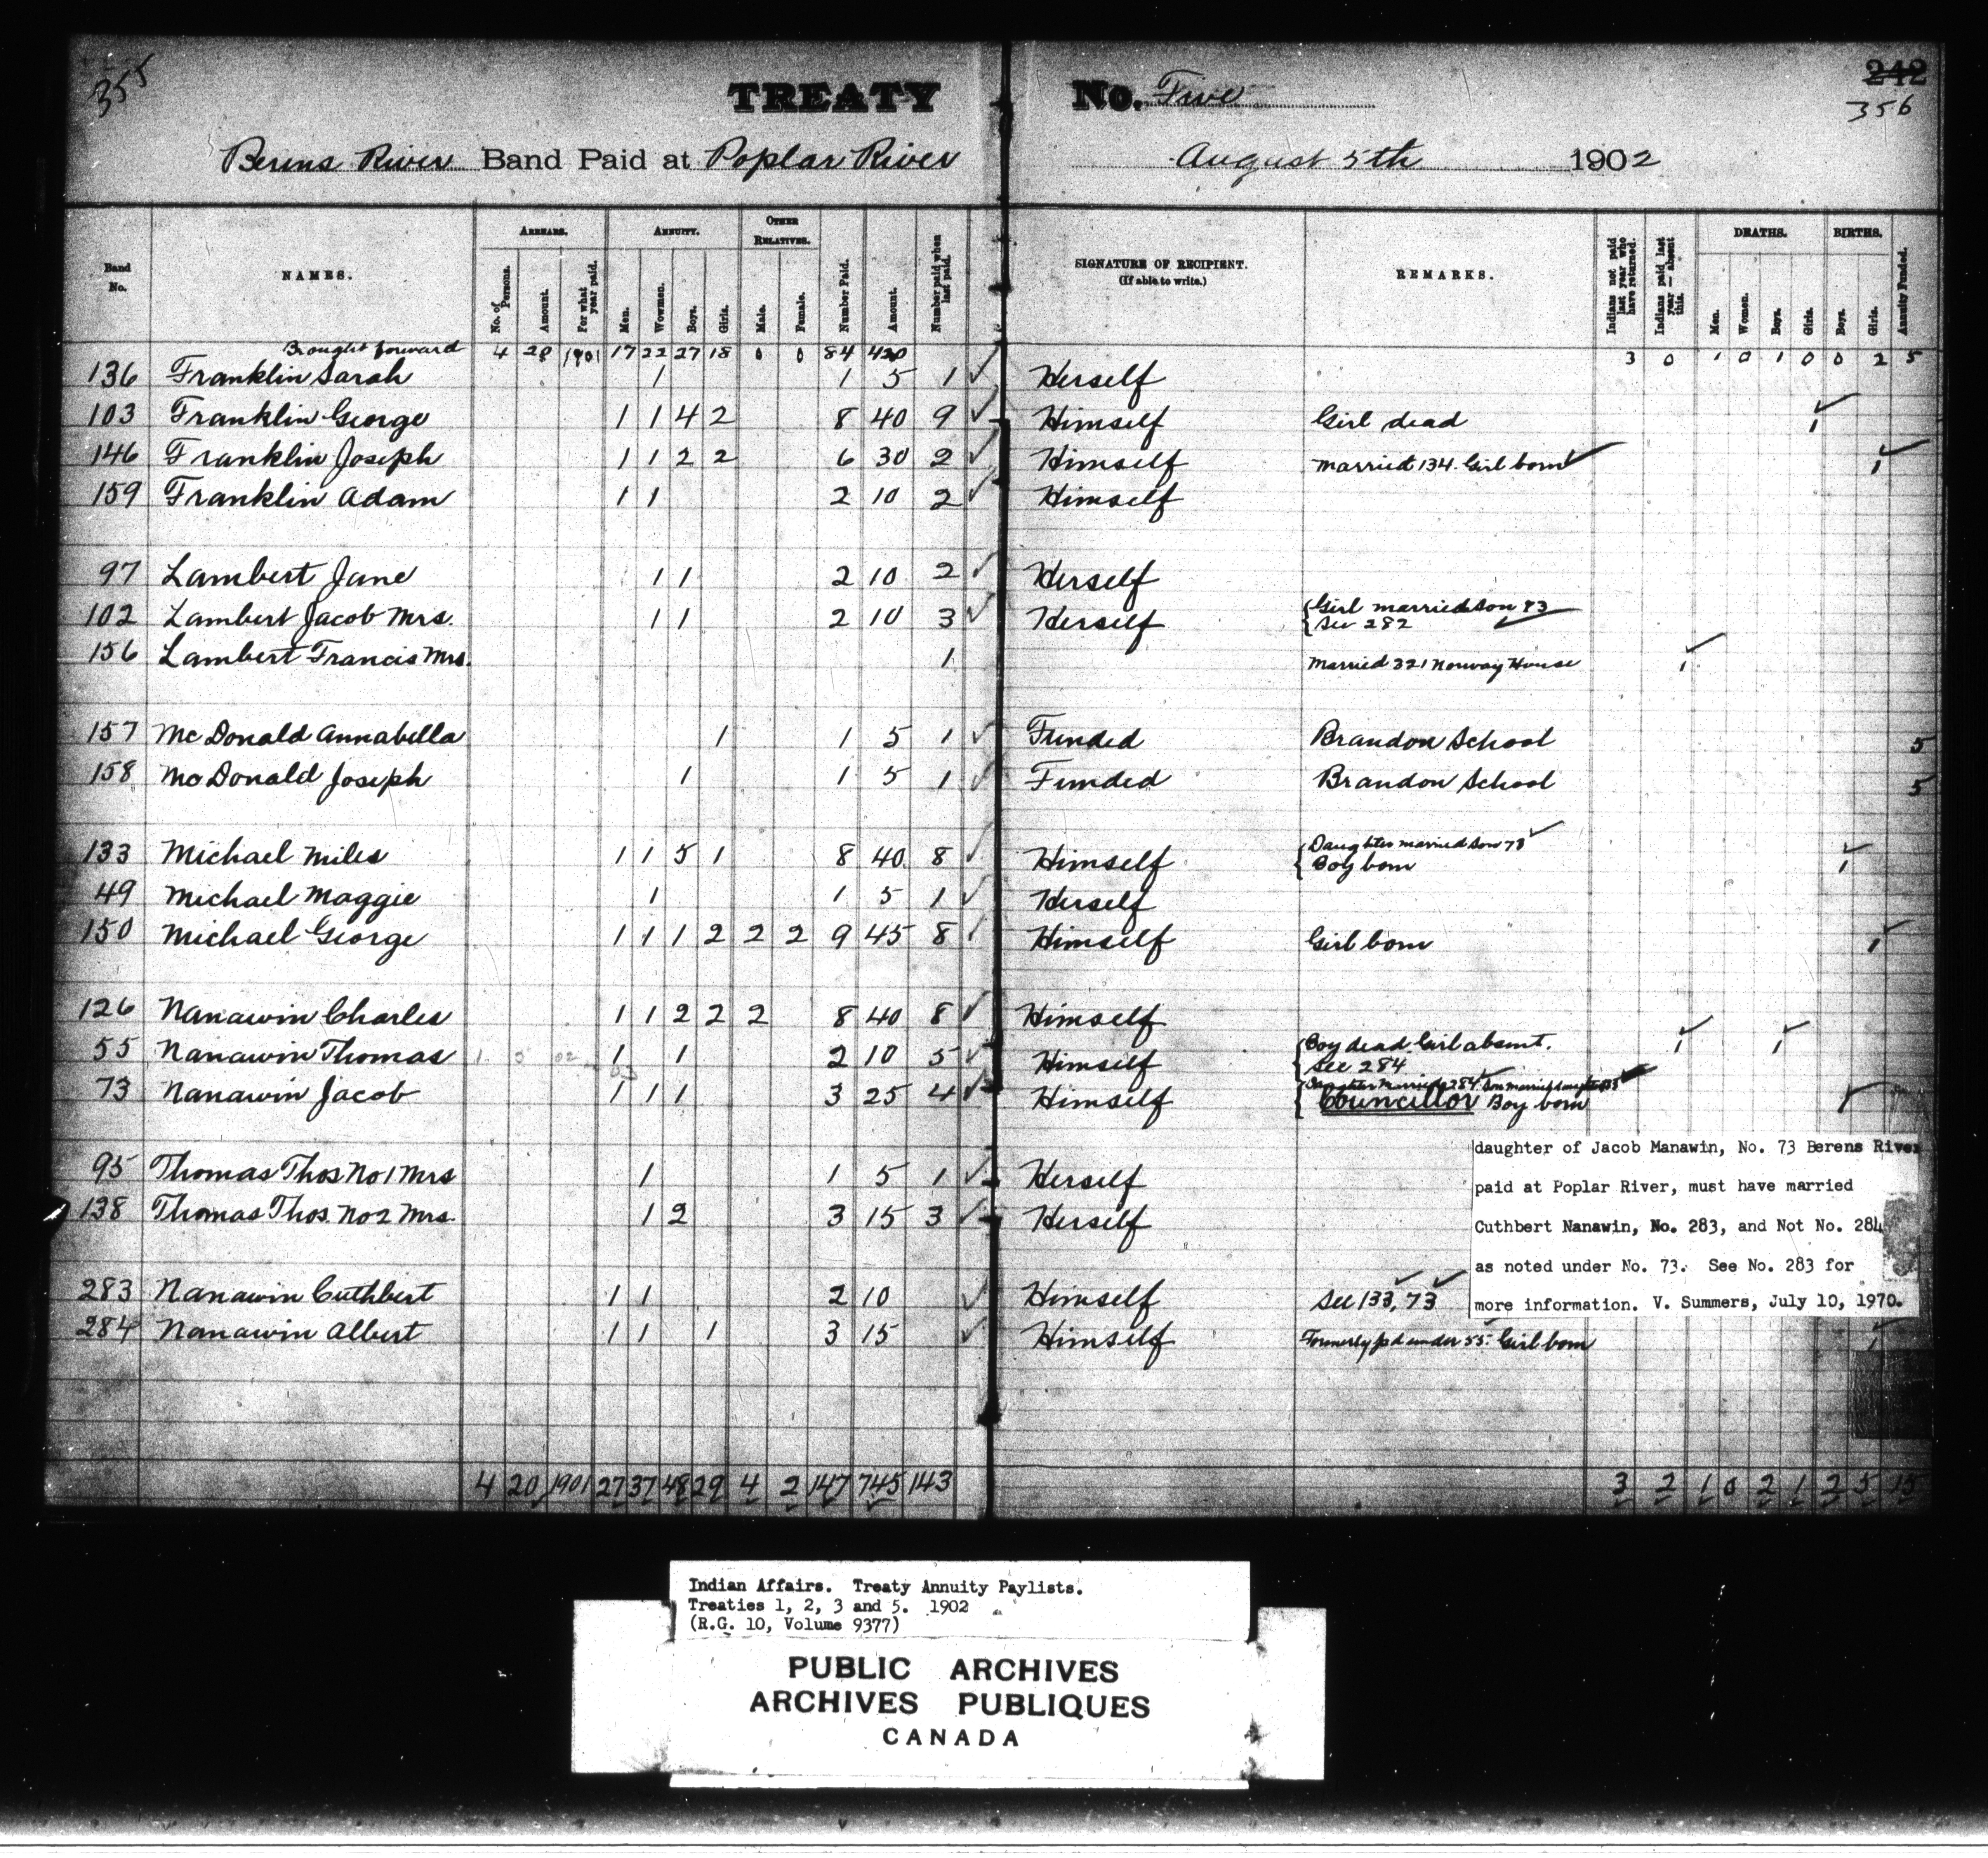 355
TREATY No. Five
242
356
Berens River Band Paid at Poplar River August 5th 1902
Band No. NAMES. ARREARS. No. of Persons. Amount. For what year paid. ANNUITY. Men. Women. Boys. Girls. OTHER RELATIVES. Male. Female. Number Paid. Amount. Number paid when last paid. SIGNATURE OF RECIPIENT. (If able to write.) REMARKS. Indians not paid last year who have returned. Indians paid last year — absent this. DEATHS. Men. Women. Boys. Girls. BIRTHS. Boys. Girls. Annuity Funded.
Brought forward 4 20 1901 17 22 27 18 0 0 84 420 3 0 1 0 1 0 0 2 5
136 Franklin Sarah 1 1 5 1 ✓ Herself
103 Franklin George 1 1 4 2 8 40 9 ✓ Himself Girl dead 1 ✓
146 Franklin Joseph 1 1 2 2 6 30 2 ✓ Himself Married 134. Girl born ✓ 1 ✓
159 Franklin Adam 1 1 2 10 2 ✓ Himself
97 Lambert Jane 1 1 2 10 2 ✓ Herself
102 Lambert Jacob Mrs. 1 1 2 10 3 ✓ Herself Girl married son 73
See 282 ✓
156 Lambert Francis Mrs. 1 Married 321 Norway House 1 ✓
157 McDonald Annabella 1 1 5 1 ✓ Funded Brandon School 5
158 McDonald Joseph 1 1 5 1 ✓ Funded Brandon School 5
133 Michael Miles 1 1 5 1 8 40 8 ✓ Himself Daughter married son 73 ✓
Boy born 1 ✓
49 Michael Maggie 1 1 5 1 ✓ Herself
150 Michael George 1 1 1 2 2 2 9 45 8 ✓ Himself Girl born 1 ✓
126 Nanawin Charles 1 1 2 2 2 8 40 8 ✓ Himself
55 Nanawin Thomas 1 5 02 1 1 2 10 5 ✓ Himself Boy dead. Girl absent. 1 ✓ 1 ✓
See 284
73 Nanawin Jacob 1 1 1 3 25 4 ✓ Himself Daughter married 284. Son married daughter 133 ✓
Councillor Boy born ✓
95 Thomas Thos. No 1 Mrs 1 1 5 1 ✓ Herself
138 Thomas Thos. No 2 Mrs. 1 2 3 15 3 ✓ Herself
daughter of Jacob Manawin, No. 73 Berens River
paid at Poplar River, must have married
Cuthbert Nanawin, No. 283, and Not No. 284
as noted under No. 73. See No. 283 for
more information. V. Summers, July 10, 1970.
283 Nanawin Cuthbert 1 1 2 10 ✓ Himself See 133, 73
284 Nanawin Albert 1 1 1 3 15 ✓ Himself Formerly pd under 55. Girl born 1 ✓
4 20 1901 27 37 48 29 4 2 147 745 143 3 2 1 0 2 1 2 5 15
Indian Affairs. Treaty Annuity Paylists.
Treaties 1, 2, 3 and 5. 1902
(R.G. 10, Volume 9377)
PUBLIC ARCHIVES
ARCHIVES PUBLIQUES
CANADA